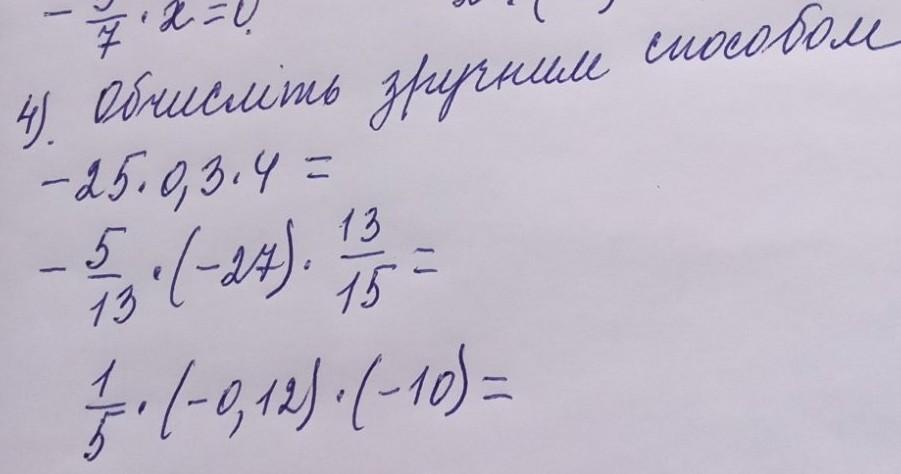 7 · x = 0.
4). Обчисліть зручним способом
-25·0,3·4 =
- 5/13 · (-27) · 13/15 =
1/5 · (-0,12) · (-10) =